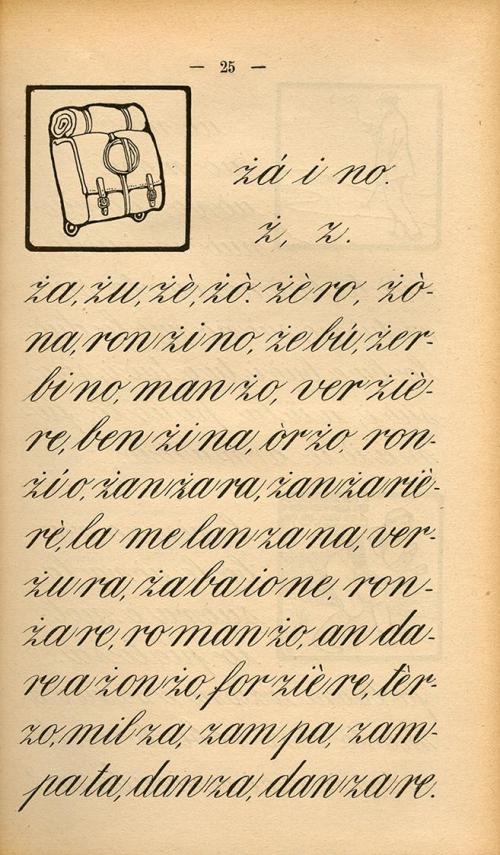 — 25 —
żá i no.
ż, z.
ża, żu, żè, żò. żèro, żò-
na, ronżino, żebú, żer-
bino, manżo, verżiè-
re, benżina, òrżo, ron-
żío, żanżara, żanżariè-
rè, la melanzana, ver-
żura, żabaione, ron-
żare, romanżo, anda-
re a żonżo, forzière, tèr-
zo, milza, zampa, zam-
pata, danza, danzare.